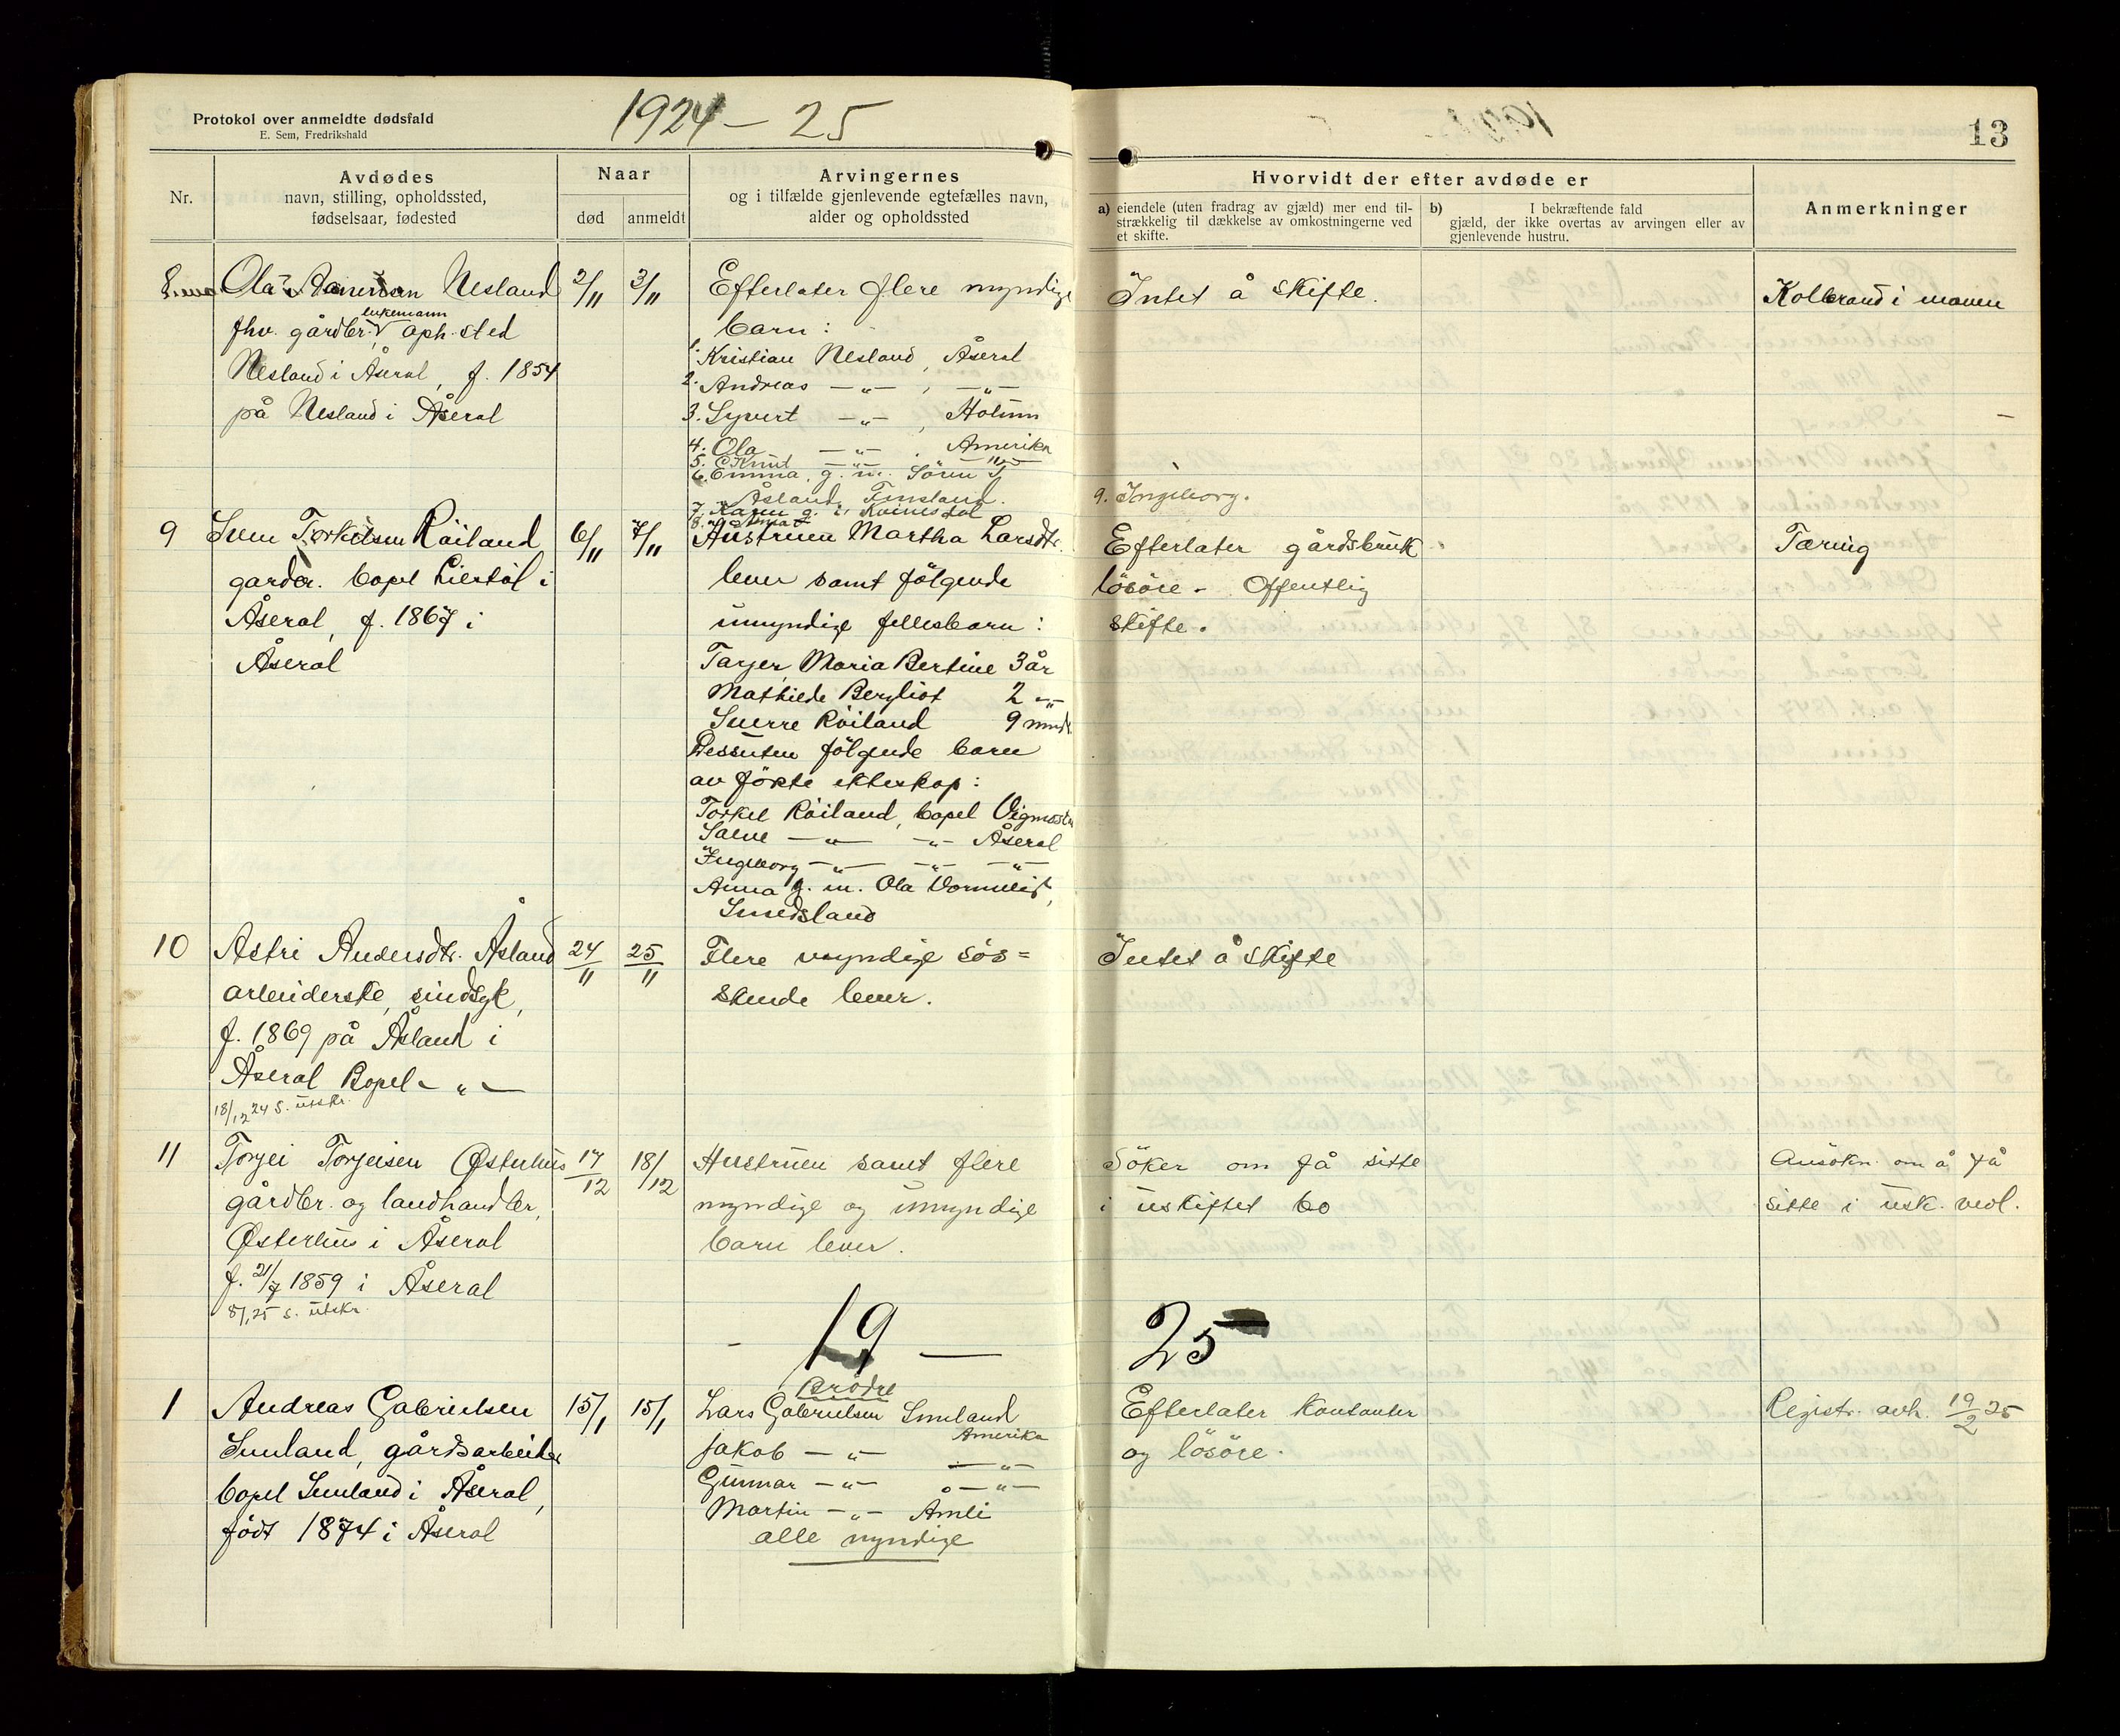 Protokol over anmeldte dødsfald
E. Sem, Fredrikshald
1924 - 25
13
Nr.
Avdødes
navn, stilling, opholdssted,
fødselsaar, fødested
Naar
død
anmeldt
Arvingernes
og i tilfælde gjenlevende egtefælles navn,
alder og opholdssted
Hvorvidt der efter avdøde er
a) eiendele (uten fradrag av gjæld) mer end til-
strækkelig til dækkelse av omkostningerne ved
et skifte.
b) I bekræftende fald
gjæld, der ikke overtas av arvingen eller av
gjenlevende hustru.
Anmerkninger
Ola Nesland
fhv. gårdbr. enkemann oph.sted
Nesland i Åseral, f. 1854
på Nesland i Åseral
2/11
3/11
Efterlater flere myndige
barn:
1. Kristian Nesland, Åseral
2. Andreas -"-, -"-
3. Syvert -"-, Holum
4. Ola -"-, Amerika
5. Knut -"- -"-
6. Emma g. m. Sörm
Åsland, Finsland.
7. Karen g. i Kvinesdal
8. Anna
9. Ingeborg.
Intet å skifte.
Kolbrand i maven
9
Sven Torkilsen Röiland
gardbr. bopel Liestöl i
Åseral, f. 1867 i
Åseral
6/11
7/11
Hustruen Martha Larsdtr.
lever samt fölgende
umyndige fellesbarn:
Tarjer Maria Bertine 3 år
Mathilde Bergliot 2 -"-
Sverre Röiland 9 mndr.
Dessuten fölgende barn
av förste ekteskap:
Torkel Röiland, bopel Vigmostad
Salve -"- -"- Åseral
Ingeborg -"- -"- -"-
Anna g. m. Ola
Smedsland
Efterlater gårdsbruk
lösöre. Offentlig
skifte.
Tæring
10
Astri Andersdtr. Åsland
arbeiderske, sindsyk,
f. 1869 på Åsland i
Åseral Bopel -"-
18/12 24 s. utskr.
24/11
25/11
Flere myndige sös=
skende lever.
Intet å skifte
11
Torjei Torjeisen Østerhus
gårdbr. og landhandler,
Østerhus i Åseral
f. 21/7 1859 i Åseral
8/1 25 s. utskr.
17/12
18/12
Hustruen samt flere
myndige og umyndige
barn lever.
Söker om få sitte
i uskiftet bo
Ansökn. om å få
sitte i usk. vedl.
- 19 — 25
1
Andreas Gabrielsen
Smeland, gårdsarbeider
bopel Smeland i Åseral,
födt 1874 i Åseral
15/1
15/1
Brödre
Lars Gabrielsen Smeland
Amerika
Jakob -"- -"-
Gunnar -"- -"-
Martin -"- Åmli
alle myndige
Efterlater kontanter
og lösöre.
Registr. avh. 19/2 25